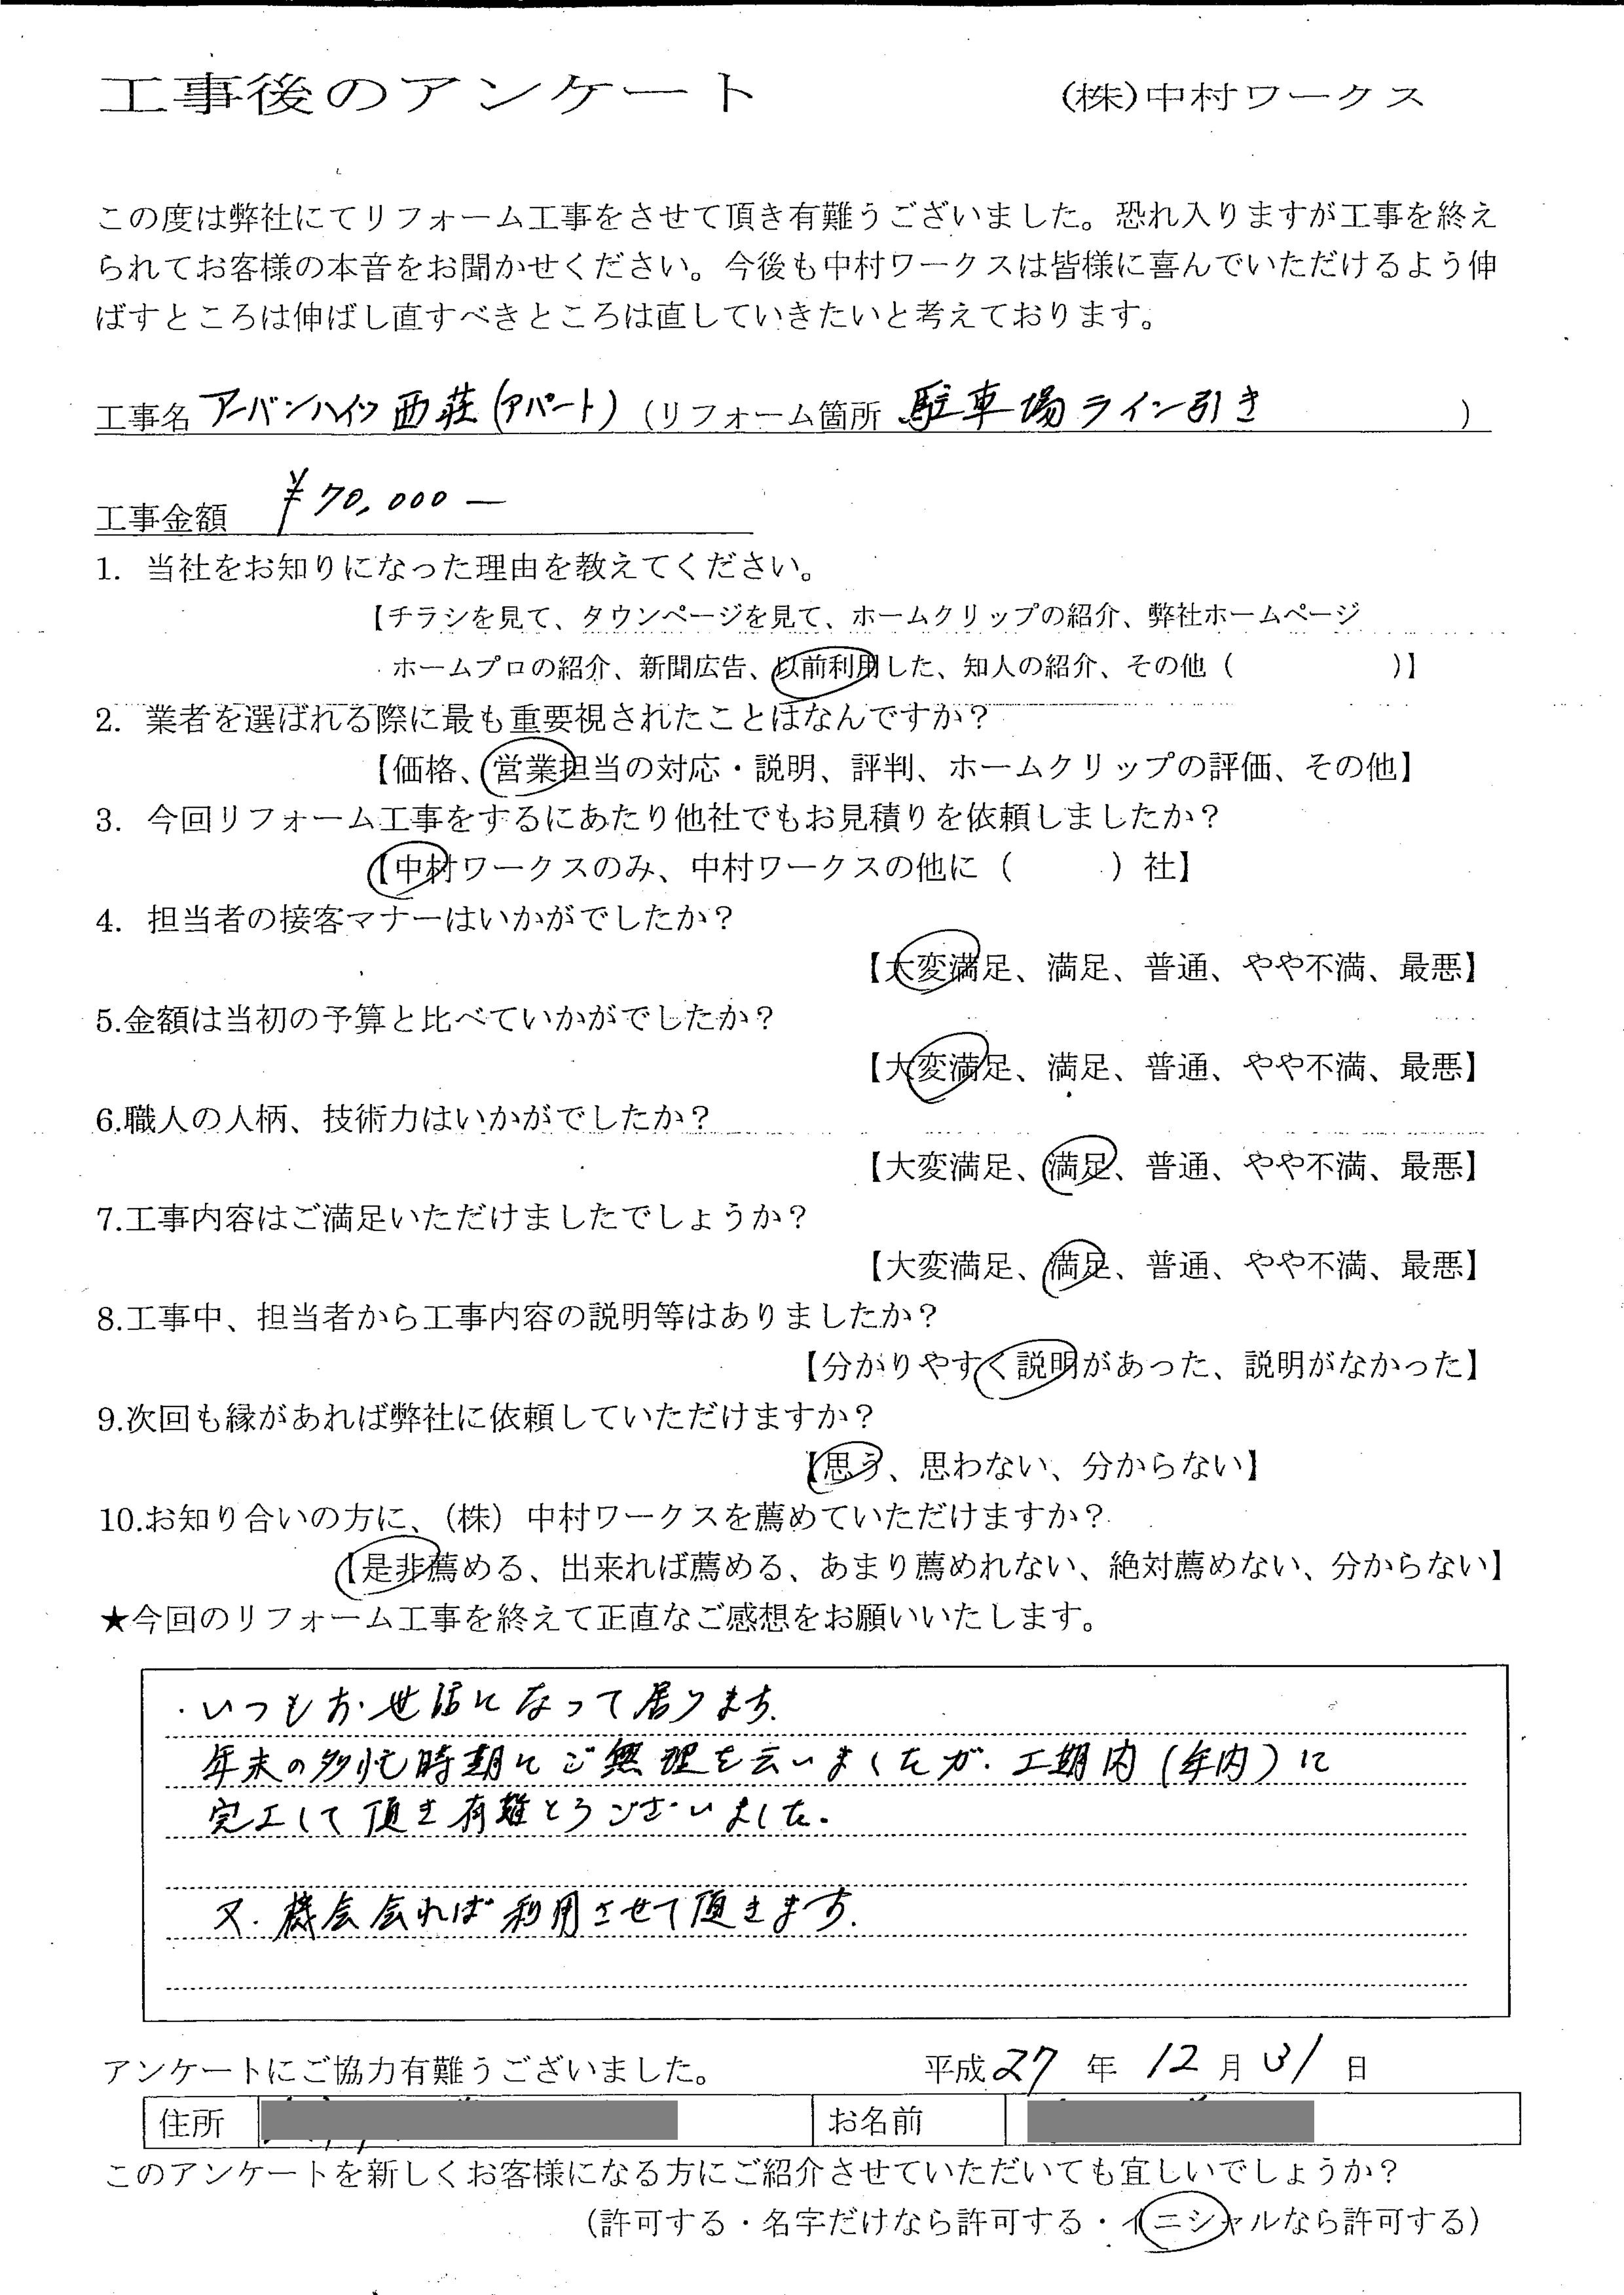 工事後のアンケート　(株)中村ワークス
この度は弊社にてリフォーム工事をさせて頂き有難うございました。恐れ入りますが工事を終え
られてお客様の本音をお聞かせください。今後も中村ワークスは皆様に喜んでいただけるよう伸
ばすところは伸ばし直すべきところは直していきたいと考えております。
工事名 アーバンハイツ西荘(アパート) (リフォーム箇所 駐車場ライン引き )
工事金額 ¥70,000―
1. 当社をお知りになった理由を教えてください。
【チラシを見て、タウンページを見て、ホームクリップの紹介、弊社ホームページ
ホームプロの紹介、新聞広告、以前利用した、知人の紹介、その他（　　　　　）】
2. 業者を選ばれる際に最も重要視されたことはなんですか？
【価格、営業担当の対応・説明、評判、ホームクリップの評価、その他】
3. 今回リフォーム工事をするにあたり他社でもお見積りを依頼しましたか？
【中村ワークスのみ、中村ワークスの他に（　　　）社】
4. 担当者の接客マナーはいかがでしたか？
【大変満足、満足、普通、やや不満、最悪】
5.金額は当初の予算と比べていかがでしたか？
【大変満足、満足、普通、やや不満、最悪】
6.職人の人柄、技術力はいかがでしたか？
【大変満足、満足、普通、やや不満、最悪】
7.工事内容はご満足いただけましたでしょうか？
【大変満足、満足、普通、やや不満、最悪】
8.工事中、担当者から工事内容の説明等はありましたか？
【分かりやすく説明があった、説明がなかった】
9.次回も縁があれば弊社に依頼していただけますか？
【思う、思わない、分からない】
10.お知り合いの方に、（株）中村ワークスを薦めていただけますか？
【是非薦める、出来れば薦める、あまり薦めれない、絶対薦めない、分からない】
★今回のリフォーム工事を終えて正直なご感想をお願いいたします。
・いつもお世話になって居ります.
年末の多忙時期にご無理を云いましたが.工期内(年内)に
完工して頂き有難とうございました.
又.機会会れば利用させて頂きます.
アンケートにご協力有難うございました。　平成27年12月31日
住所　お名前
このアンケートを新しくお客様になる方にご紹介させていただいても宜しいでしょうか？
(許可する・名字だけなら許可する・イニシャルなら許可する)